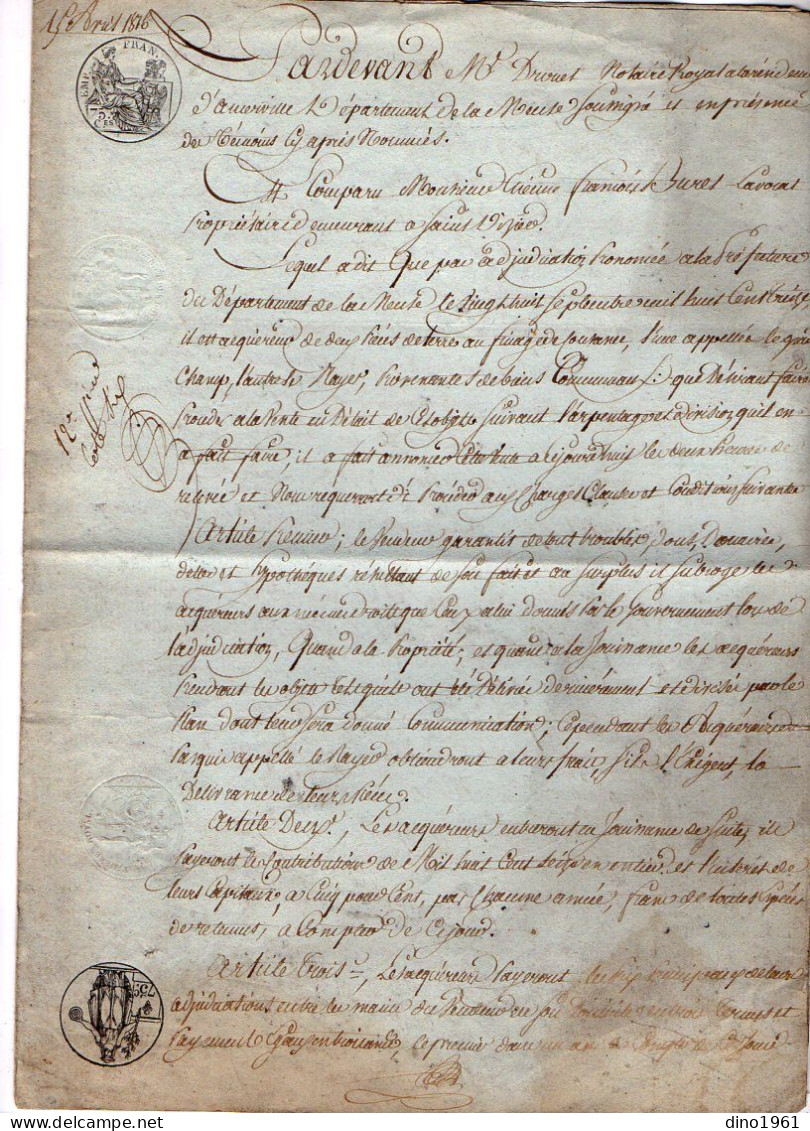 15 Avril 1816
Pardevant Me Drouet Notaire Royal a la résidence
d'ancerville Département de la Meuse Soussigné et en présence
de Témoins cy après Nommés.
Est Comparu Monsieur Etienne françois Bures Lavocat
Propriétaire demeurant a Saint Dizier.
Lequel a dit Que par adjudication Prononcée a la Préfecture
du Département de la Meuse le Vingt huit Septembre mil huit Cent treize
il est acquéreur de deux Pièces de terre au finage de l'une appellée le grand
Champ, l'autre le Rayer, Provenantes de biens Communaux : que Désirant faire
Procéder a la Vente en Détail de Ces objets suivant l'arpentage et division qu'il en
a fait faire, il a fait annoncer Cette Vente a Cejourd'huis les deux heures de
relevée et Nous requerrant d'y Procéder aux Charges Clauses et Conditions suivantes
Article Premier; le Vendeur garantit de tout troubles, Dons, Douaires,
dettes et hypothéques résultant de son fait et au surplus il subroge les
acquéreurs aux mêmes droits que Ceux a lui donnés Par le Gouvernement lors de
l'adjudication, Quand a la Propriété; et quand a la Jouissance les acquéreurs
Prendront les objets tels qu'ils ont été Délivrés dernièrement et divisés par le
Plan dont leur sera donné Communication; Cependant les Acquéreurs
Parquis appellé le Rayer obtiendront a leurs frais, s'ils l'Exigent, la
Delivrance de leurs Pièces.
Article Deuxe., Les acquéreurs entreront en Jouissance de suite, ils
Payeront les Contributions de Mil huit Cent seize en entier et l'intérêt de
leurs Capitaux, a Cinq pour Cent, par Chacune année, franc de toutes Espèces
de retenues, a Compter de Cejour.
Article trois e., Les acquéreurs Payeront le prix Principaux de leurs
adjudications entre les mains du Vendeur en son Domicile en trois termes et
Payements Egaux en trois ans, le premier dans un an a Compter de Ce Jour
12e
TIMBRE
FRAN.
75 C